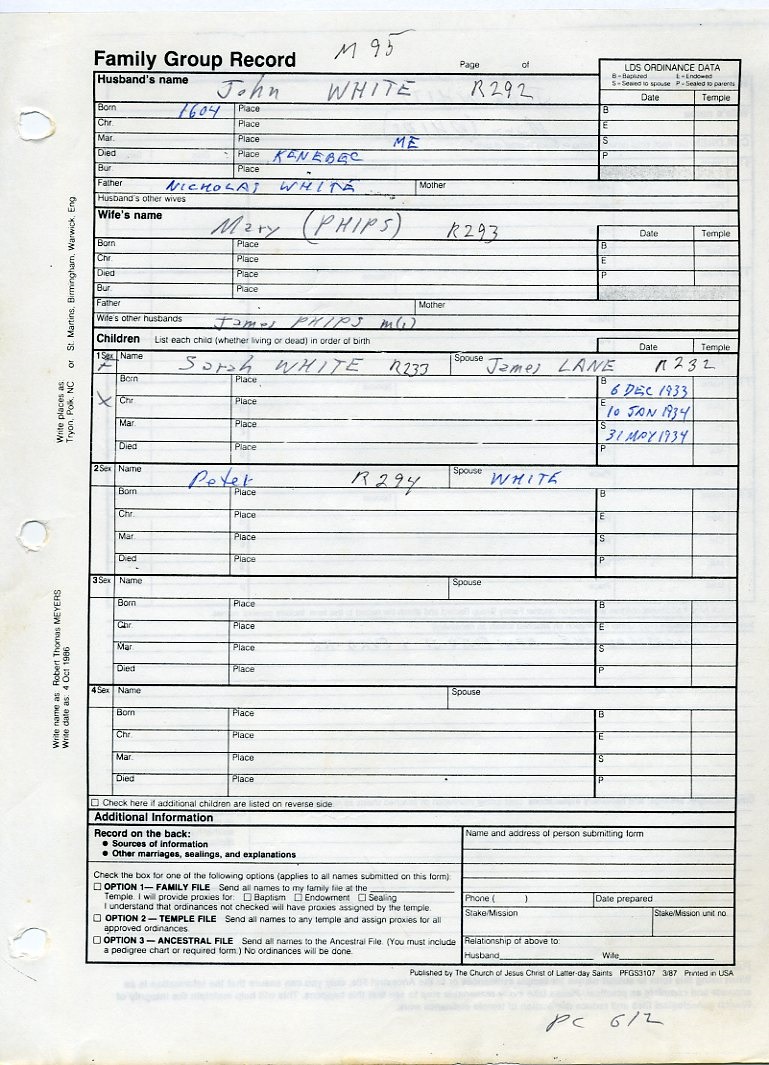 Family Group Record M 95 Page of
LDS ORDINANCE DATA
B = Baptized E = Endowed
S = Sealed to spouse P = Sealed to parents
Husband's name John WHITE R292 Date Temple
Born 1604 Place B
Chr. Place E
Mar. Place ME S
Died Place KENEBEC P
Bur. Place
Father NICHOLAS WHITE Mother
Husband's other wives
Wife's name Mary (PHIPS) R293 Date Temple
Born Place B
Chr. Place E
Died Place P
Bur. Place
Father Mother
Wife's other husbands James PHIPS m(1)
Children List each child (whether living or dead) in order of birth Date Temple
1 Sex F Name Sarah WHITE R233 Spouse James LANE R232
Born Place B 6 DEC 1933
X Chr. Place E 10 JAN 1934
Mar. Place S 31 MAY 1934
Died Place P
2 Sex Name Peter R294 Spouse WHITE
Born Place B
Chr. Place E
Mar. Place S
Died Place P
3 Sex Name Spouse
Born Place B
Chr. Place E
Mar. Place S
Died Place P
4 Sex Name Spouse
Born Place B
Chr. Place E
Mar. Place S
Died Place P
Check here if additional children are listed on reverse side.
Additional Information
Record on the back:
● Sources of information
● Other marriages, sealings, and explanations
Check the box for one of the following options (applies to all names submitted on this form):
OPTION 1— FAMILY FILE Send all names to my family file at the
Temple. I will provide proxies for: Baptism Endowment Sealing
I understand that ordinances not checked will have proxies assigned by the temple.
OPTION 2 — TEMPLE FILE Send all names to any temple and assign proxies for all
approved ordinances.
OPTION 3 — ANCESTRAL FILE Send all names to the Ancestral File. (You must include
a pedigree chart or required form.) No ordinances will be done.
Name and address of person submitting form
Phone ( ) Date prepared
Stake/Mission Stake/Mission unit no.
Relationship of above to:
Husband Wife
Published by The Church of Jesus Christ of Latter-day Saints PFGS3107 3/87 Printed in USA
PC 612
Write places as:
Tryon, Polk, NC or St. Martins, Birmingham, Warwick, Eng
Write name as: Robert Thomas MEYERS
Write date as: 4 Oct 1986